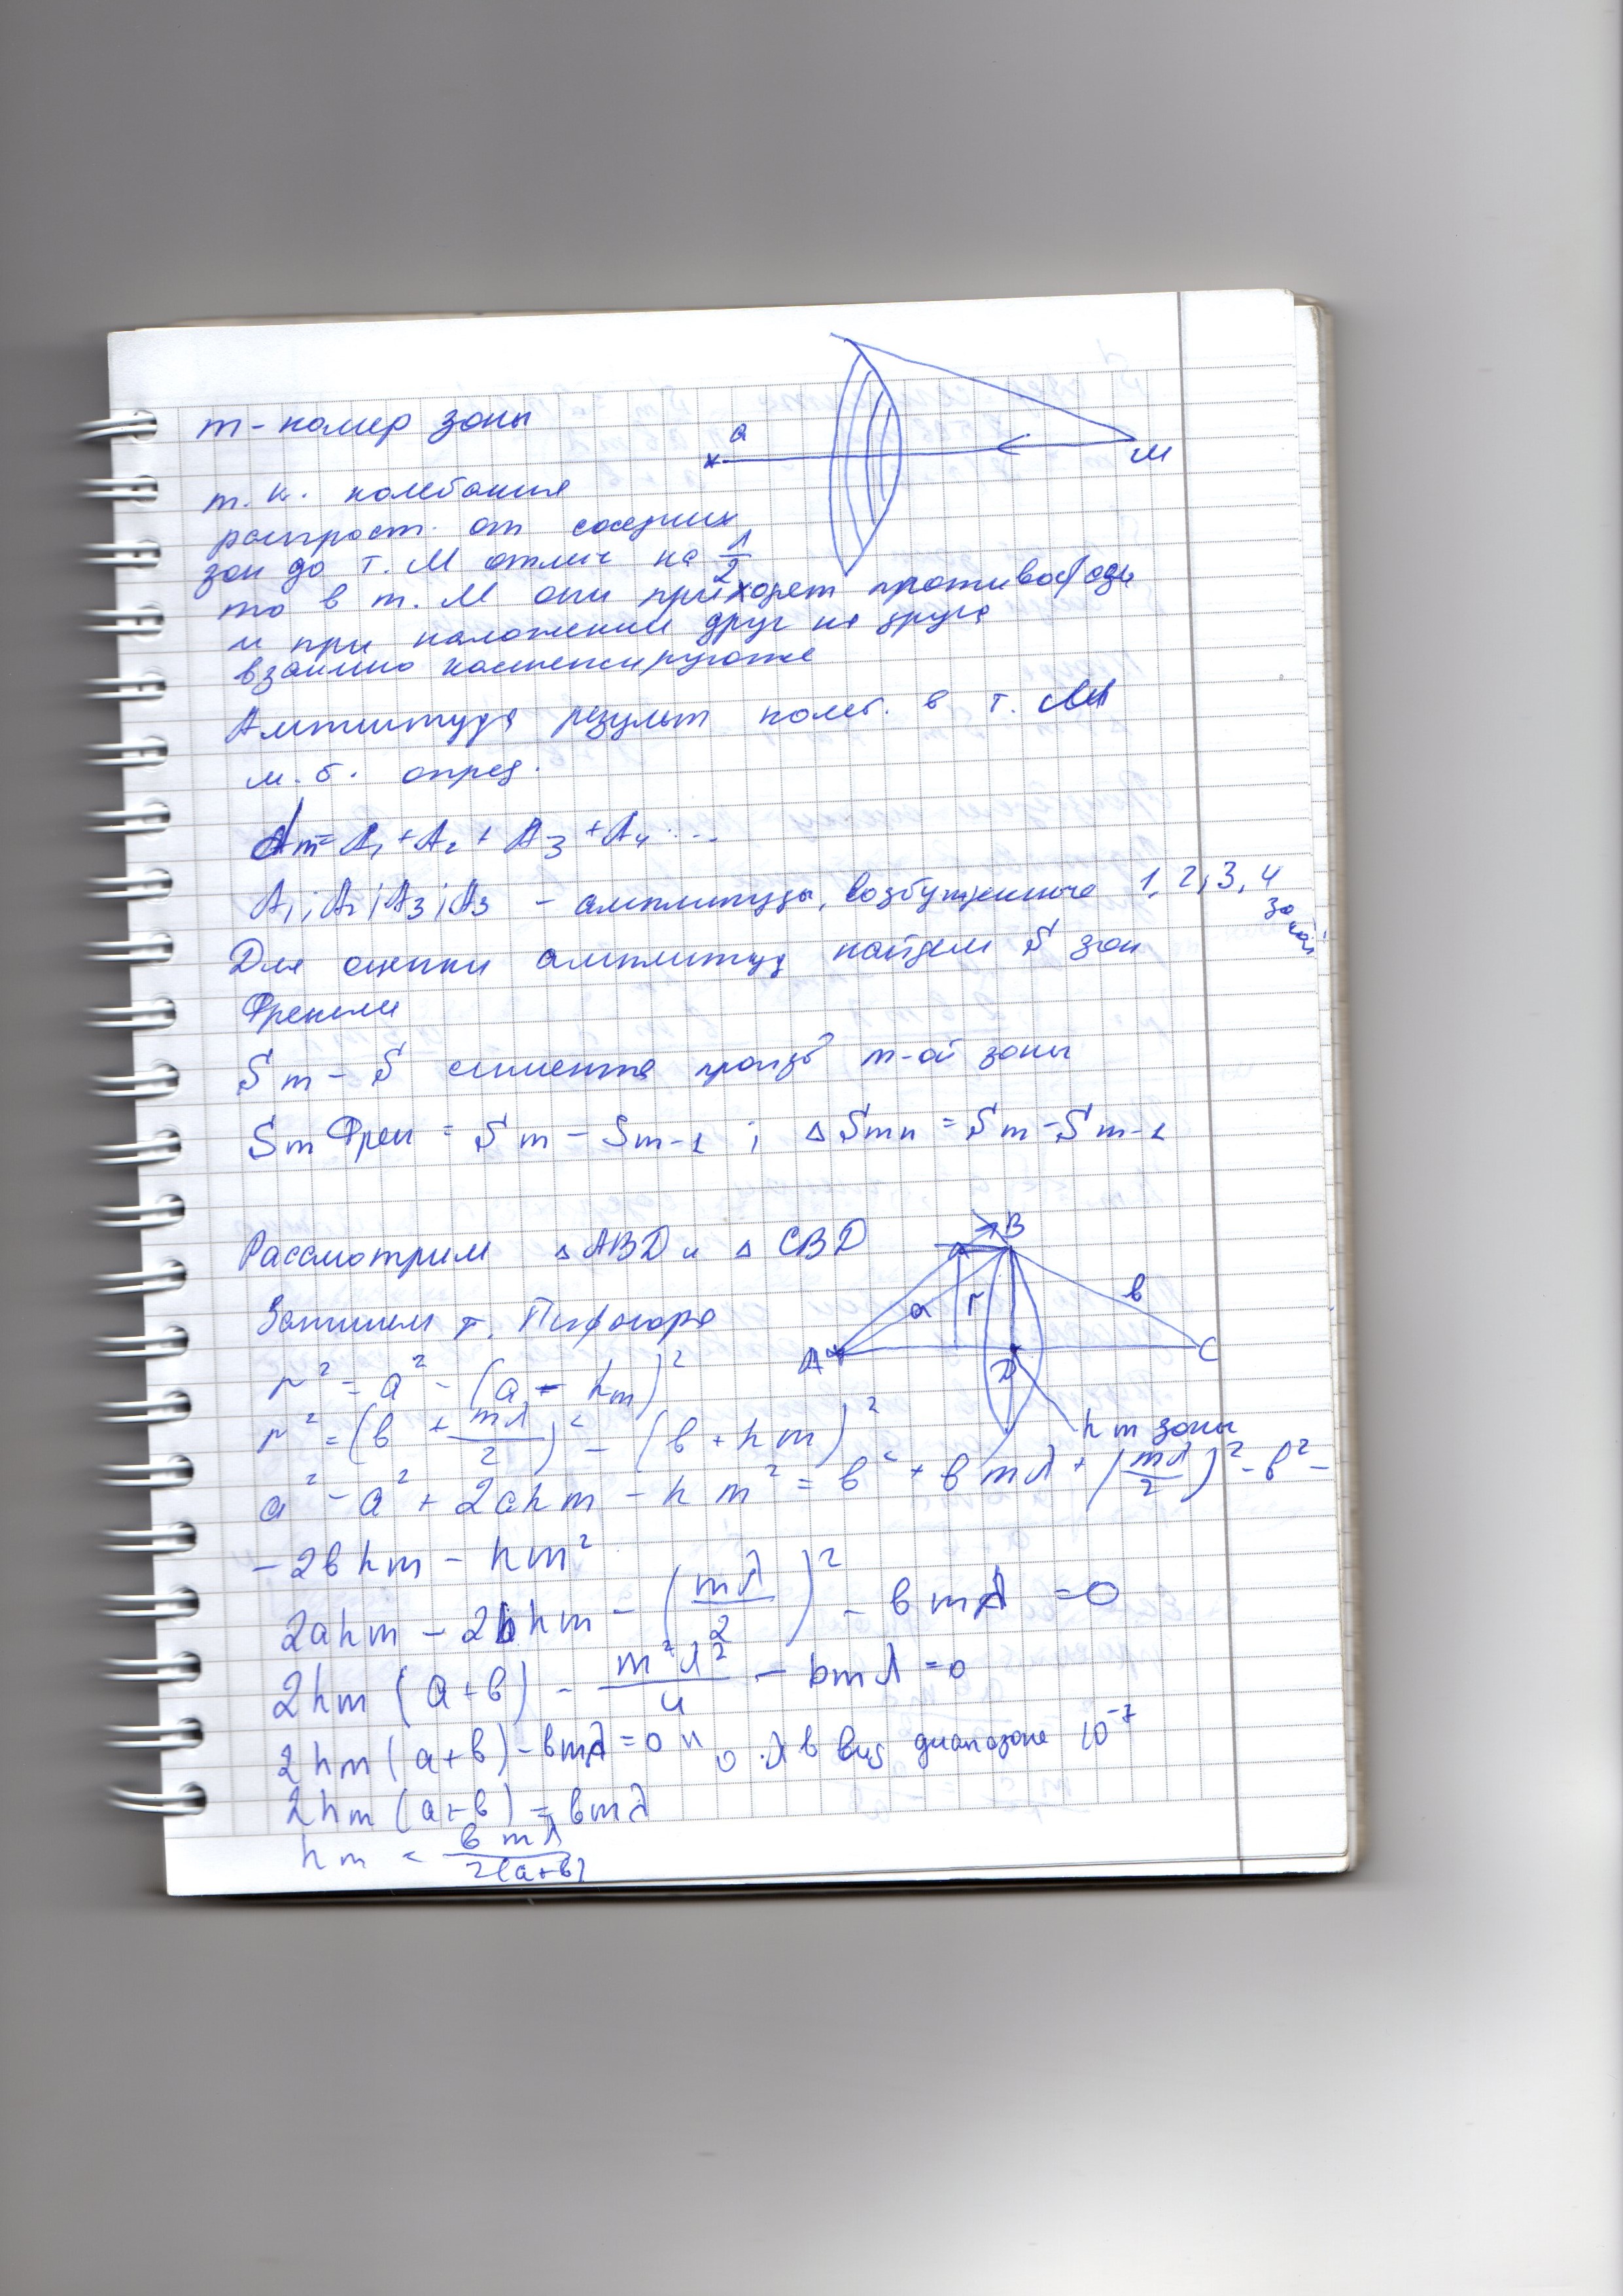 m - номер зоны
a
M
т.к. колебания
распрост. от соседних
зон до т. M отлич на 1/2
то в т. M они приходят противофазе
и при наложении друг на друга
взаимно компенсируются
Амплитуда результ колеб. в т. M
м.б. опред.
Am = A₁ + A₂ + A₃ + A₄ ...
A₁; A₂; A₃; A₃ - амплитуды, возбужденные 1, 2, 3, 4
зоной
Для оценки амплитуд найдем S зон
Френеля
Sm - S сегмента m-ой зоны
Sm Френ = Sm - Sm-1 ; ΔSmn = Sm - Sm-1
Рассмотрим △ABD и △CBD
B
a
r
в
A
D
C
hm зоны
Запишем т. Пифагора
r² = a² - (a - hm)²
r² = (в + mλ/2)² - (в + hm)²
a² - a² + 2ahm - hm² = в² + вmλ + (mλ/2)² - в² -
- 2вhm - hm²
2ahm - 2bhm - (mλ/2)² - вmλ = 0
2hm (a+в) - m²λ²/4 - bmλ = 0
2hm (a+в) - вmλ = 0 λ в вид диапазоне 10⁻⁷
2hm (a+в) = вmλ
hm = вmλ/2(a+в)